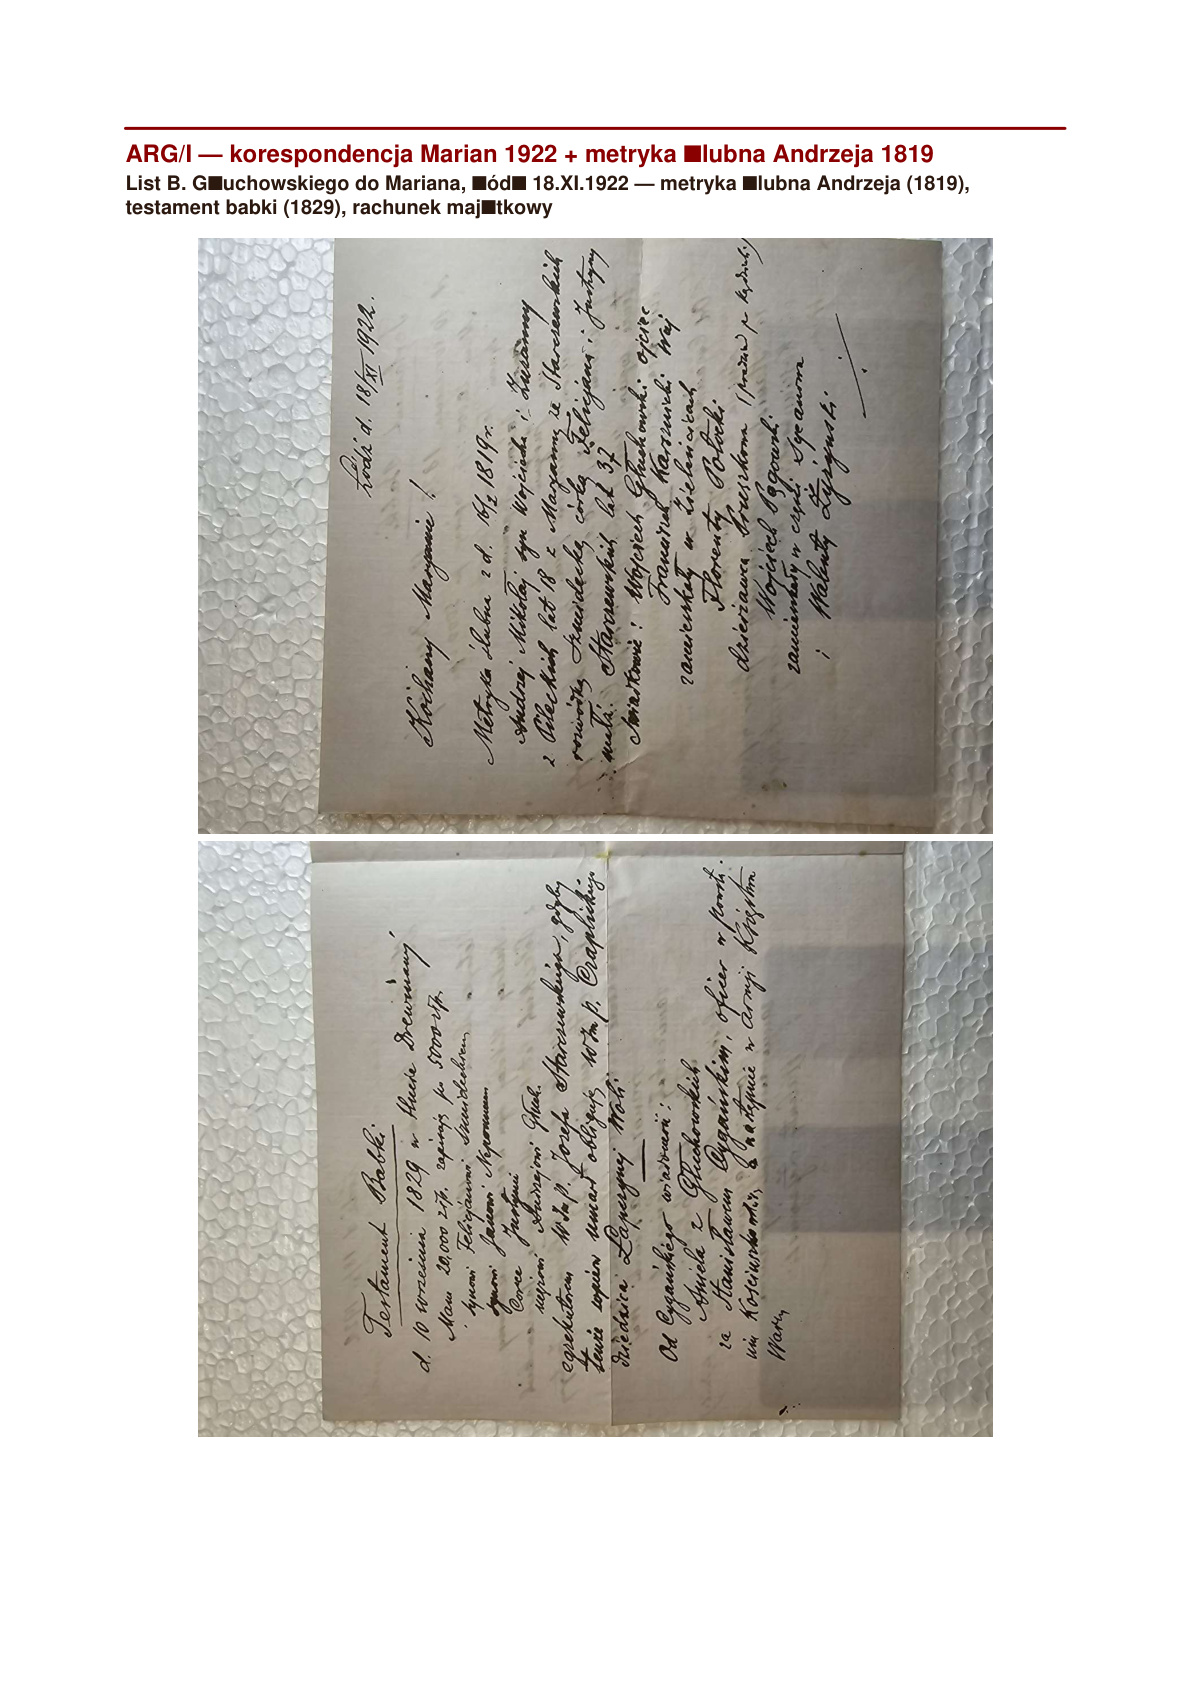 ARG/I — korespondencja Marian 1922 + metryka ■lubna Andrzeja 1819
List B. G■uchowskiego do Mariana, ■ód■ 18.XI.1922 — metryka ■lubna Andrzeja (1819),
testament babki (1829), rachunek maj■tkowy
Łódź d. 18/XI 1922.
Kochany Maryanie!
Metryka ślubna z d. 16/2 1819 r.
Andrzej Mikołaj syn Wojciecha i Zuzanny
z Pileckich lat 18 z Maryanną ze Starczewskich
rozwódką Szmidecką córką Felicjana i Justyny
Starczewskich lat 37
Świadkowie: Wojciech Głuchowski ojciec
Franciszek Karśnicki Wuj
zamieszkały w Zieleńcicach
Florenty Potocki
dzierżawca
Wojciech Pągowski
zamieszkały w części
i Walenty Łyszyński
Testament Babki
d. 10 września 1829 w Hucie Drewniany
Mam 20,000 złp. zapisuję po 5000 złp.
synowi Felicjanowi Szmideckiem
synowi Janowi Nepomucen
Corce Justynie
mężowi Andrzejowi Głuch.
egzekutorem WImp. Jozefa Starczewskiego, gdyby
tenże wpierw umarł obliguję WImp. Czaplickiego
dziedzica Zapusznej Woli
Od Cygańskiego wiadomość:
Aniela z Głuchowskich
za Stanisławem Cygańskim, oficer w powst.
nim Kościuszkowskim, a następnie w Armji Księstwa
Warsz